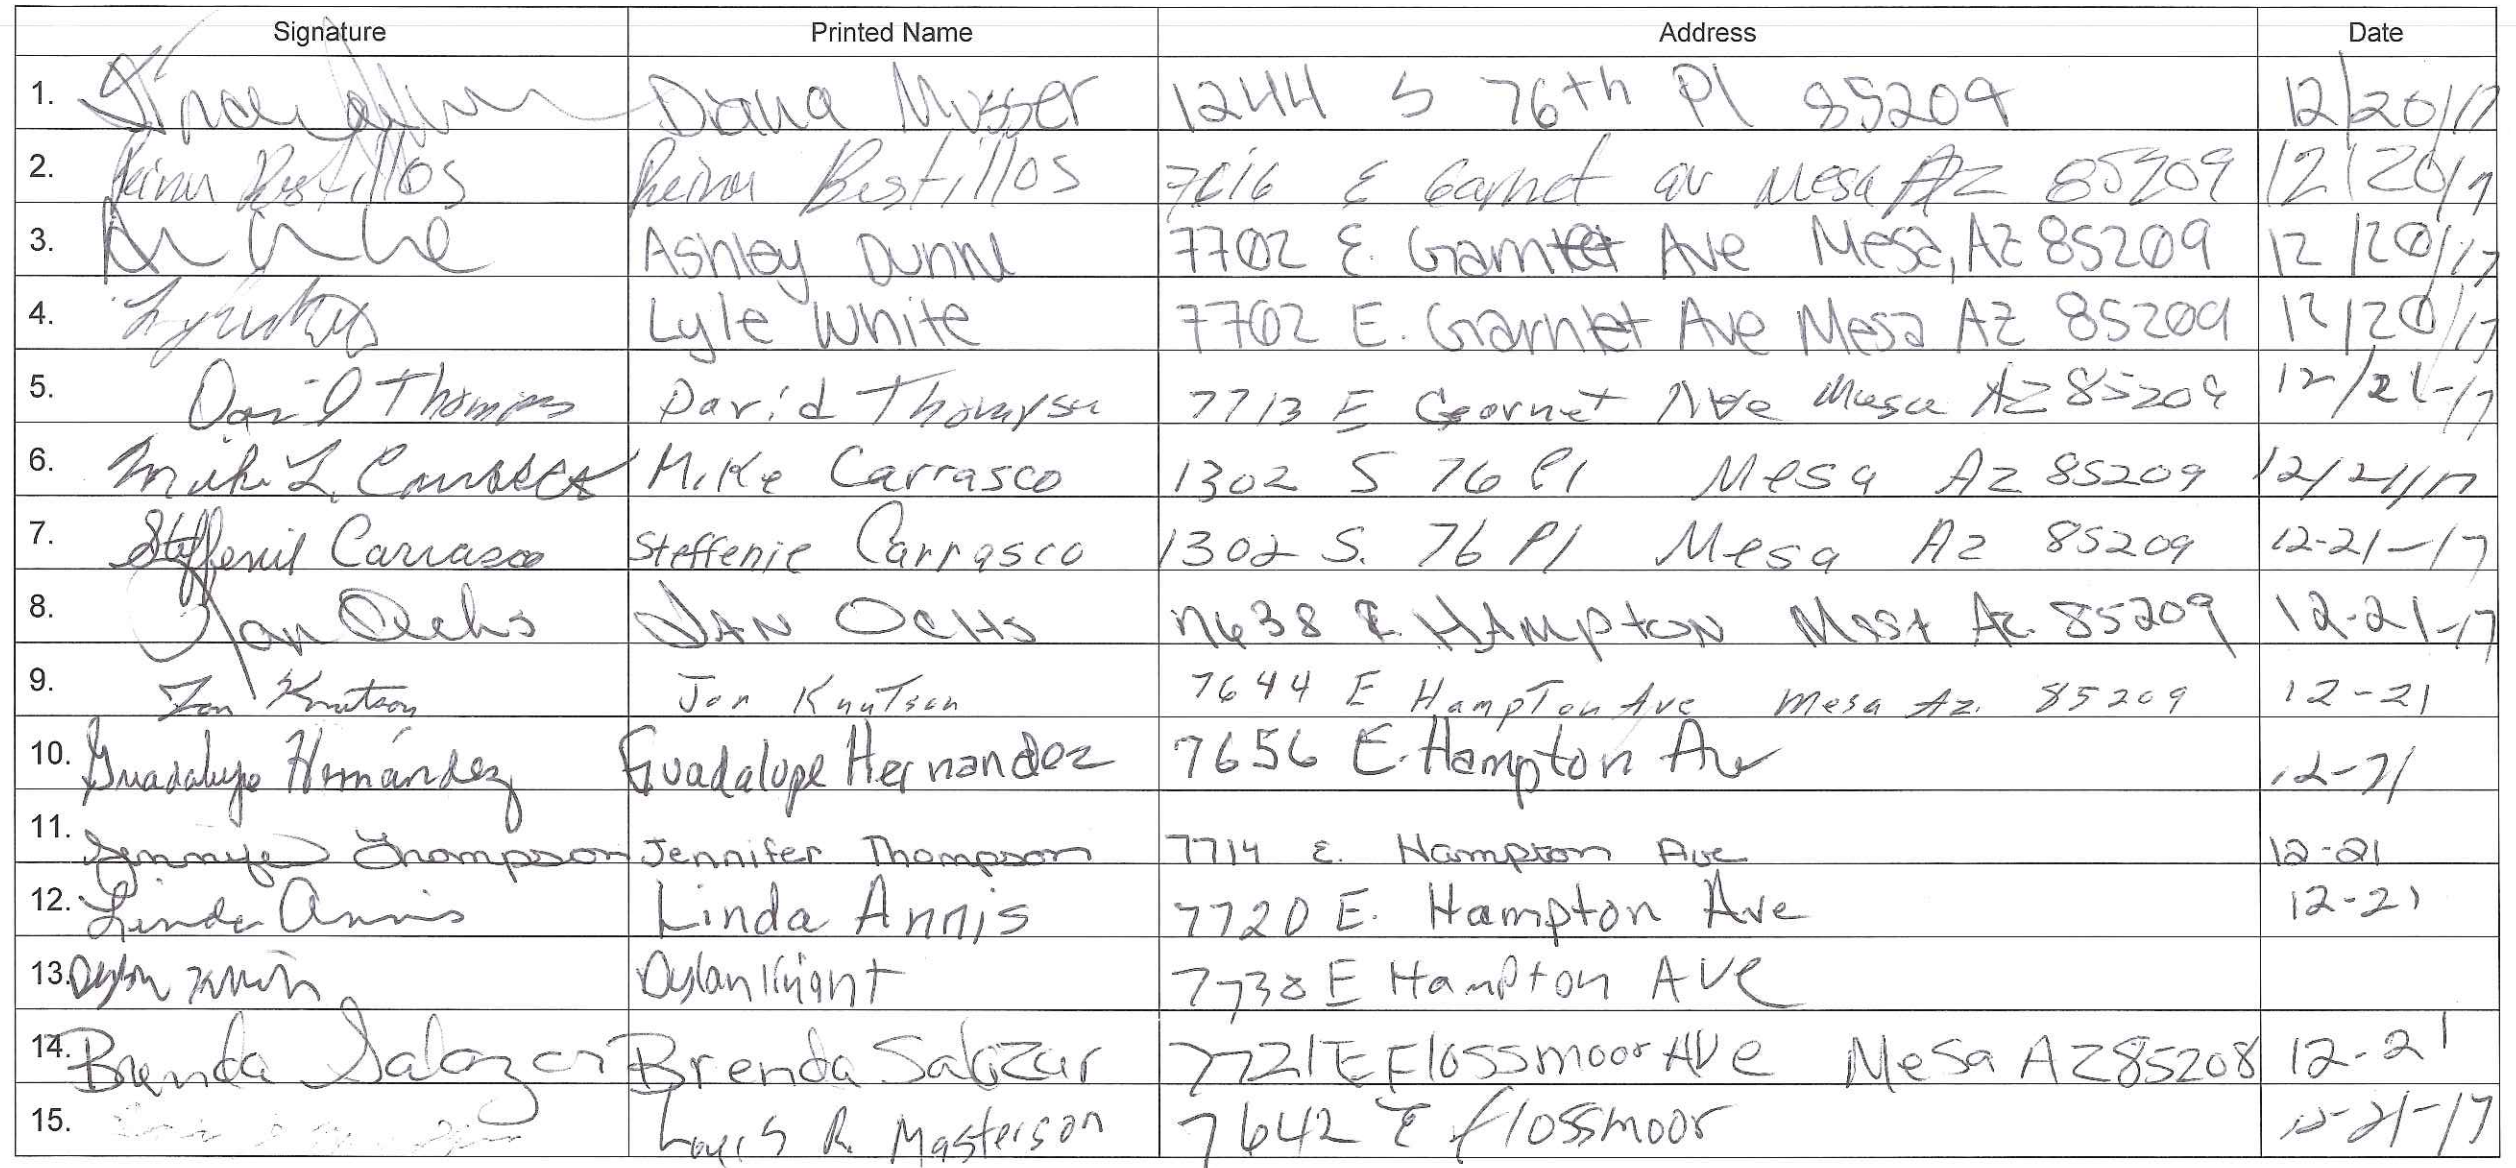 Signature Printed Name Address Date
1. Diana Musser 1244 S 76th Pl 85209 12/20/17
2. Reina Bustillos Reina Bustillos 7616 E Garnet av Mesa AZ 85209 12/20/17
3. Ashley Dunn 7702 E. Garnet Ave Mesa, AZ 85209 12/20/17
4. Lyle White 7702 E. Garnet Ave Mesa AZ 85209 12/20/17
5. David Thompson David Thompson 7713 E Garnet Ave Mesa AZ 85209 12/21-17
6. Mike L. Carrasco Mike Carrasco 1302 S 76 Pl Mesa Az 85209 12/21/17
7. Steffenie Carrasco Steffenie Carrasco 1302 S. 76 Pl Mesa Az 85209 12-21-17
8. Jan Ochs JAN OCHS 7638 E. HAMPtON Mesa Az. 85209 12-21-17
9. Jon Knutson Jon Knutson 7644 E Hampton Ave Mesa Az. 85209 12-21
10. Guadalupe Hernández Guadalupe Hernandez 7656 E. Hampton Av 12-21
11. Jennifer Thompson Jennifer Thompson 7714 E. Hampton Ave 12-21
12. Linda Annis Linda Annis 7720 E. Hampton Ave 12-21
13. Dylan Knight 7738 E Hampton AVE
14. Brenda Salazar Brenda Salazar 7721 E Flossmoor AVe Mesa AZ 85208 12-21
15. Louis R. Masterson 7642 E flossmoor 12-21-17